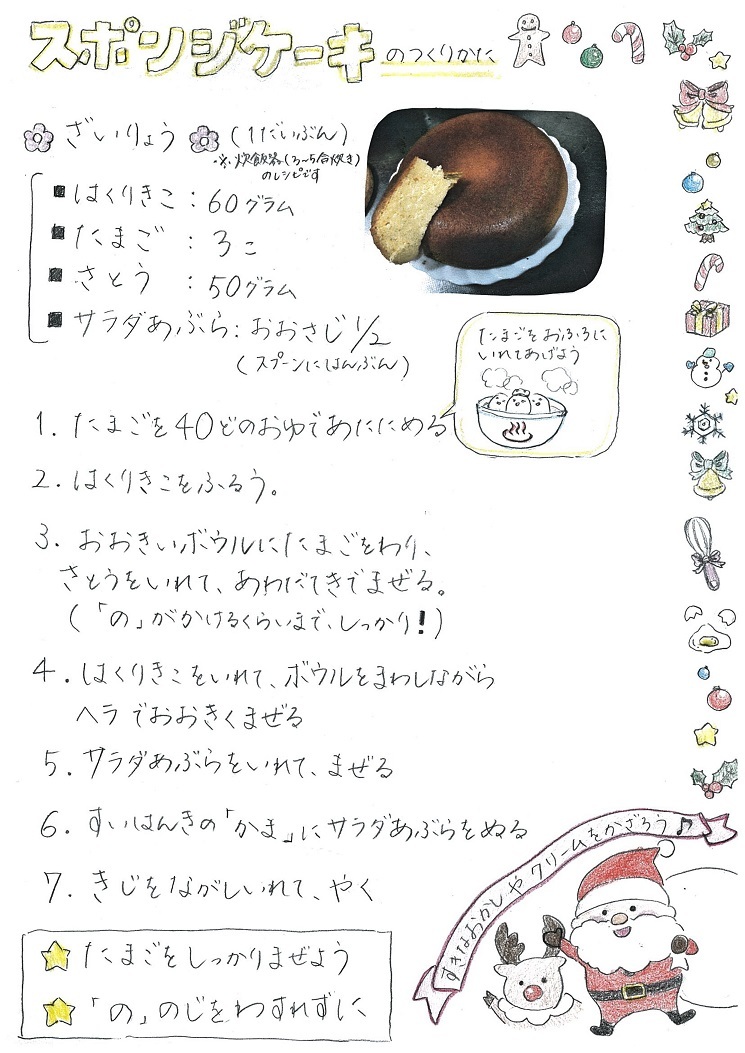 スポンジケーキのつくりかた
ざいりょう (1だいぶん)
※炊飯器(3〜5合炊き)
のレシピです
■はくりきこ:60グラム
■たまご:3こ
■さとう:50グラム
■サラダあぶら:おおさじ1/2
(スプーンにはんぶん)
たまごをおふろに
いれてあげよう
1.たまごを40どのおゆであたためる
2.はくりきこをふるう。
3.おおきいボウルにたまごをわり、
さとうをいれて、あわだてきでまぜる。
(「の」がかけるくらいまで、しっかり!)
4.はくりきこをいれて、ボウルをまわしながら
ヘラでおおきくまぜる
5.サラダあぶらをいれて、まぜる
6.すいはんきの「かま」にサラダあぶらをぬる
7.きじをながしいれて、やく
すきなおかしやクリームをかざろう♪
★たまごをしっかりまぜよう
★「の」のじをわすれずに